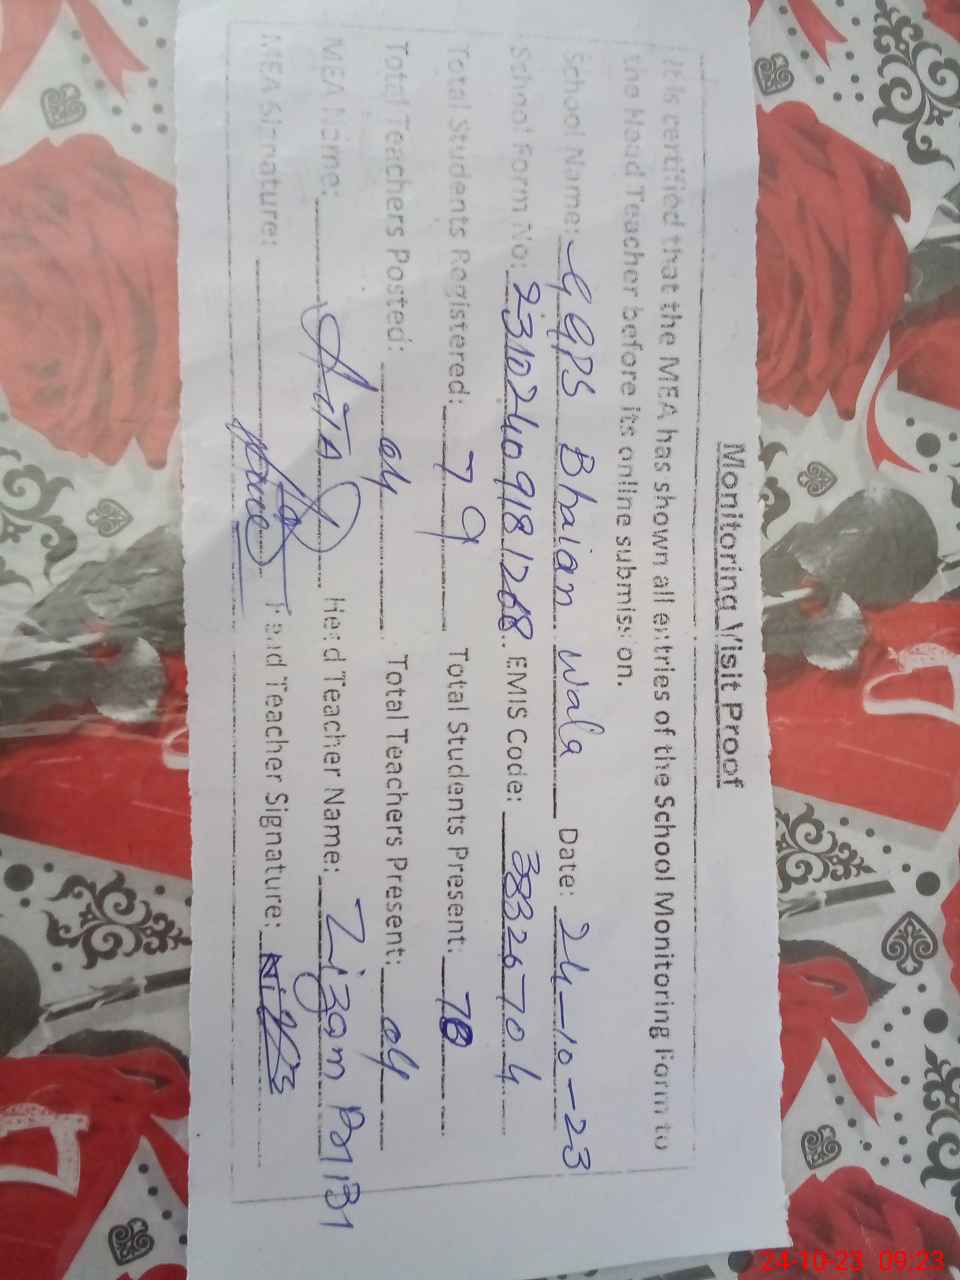 Monitoring Visit Proof
It is certified that the MEA has shown all entries of the School Monitoring Form to
the Head Teacher before its online submission.
School Name: GGPS Bhaian wala Date: 24-10-23
School Form No: 23102409181268 EMIS Code: 38326704
Total Students Registered: 79 Total Students Present: 78
Total Teachers Posted: 04 Total Teachers Present: 04
MEA Name: Head Teacher Name:
MEA Signature: Head Teacher Signature:
24-10-23 09:23